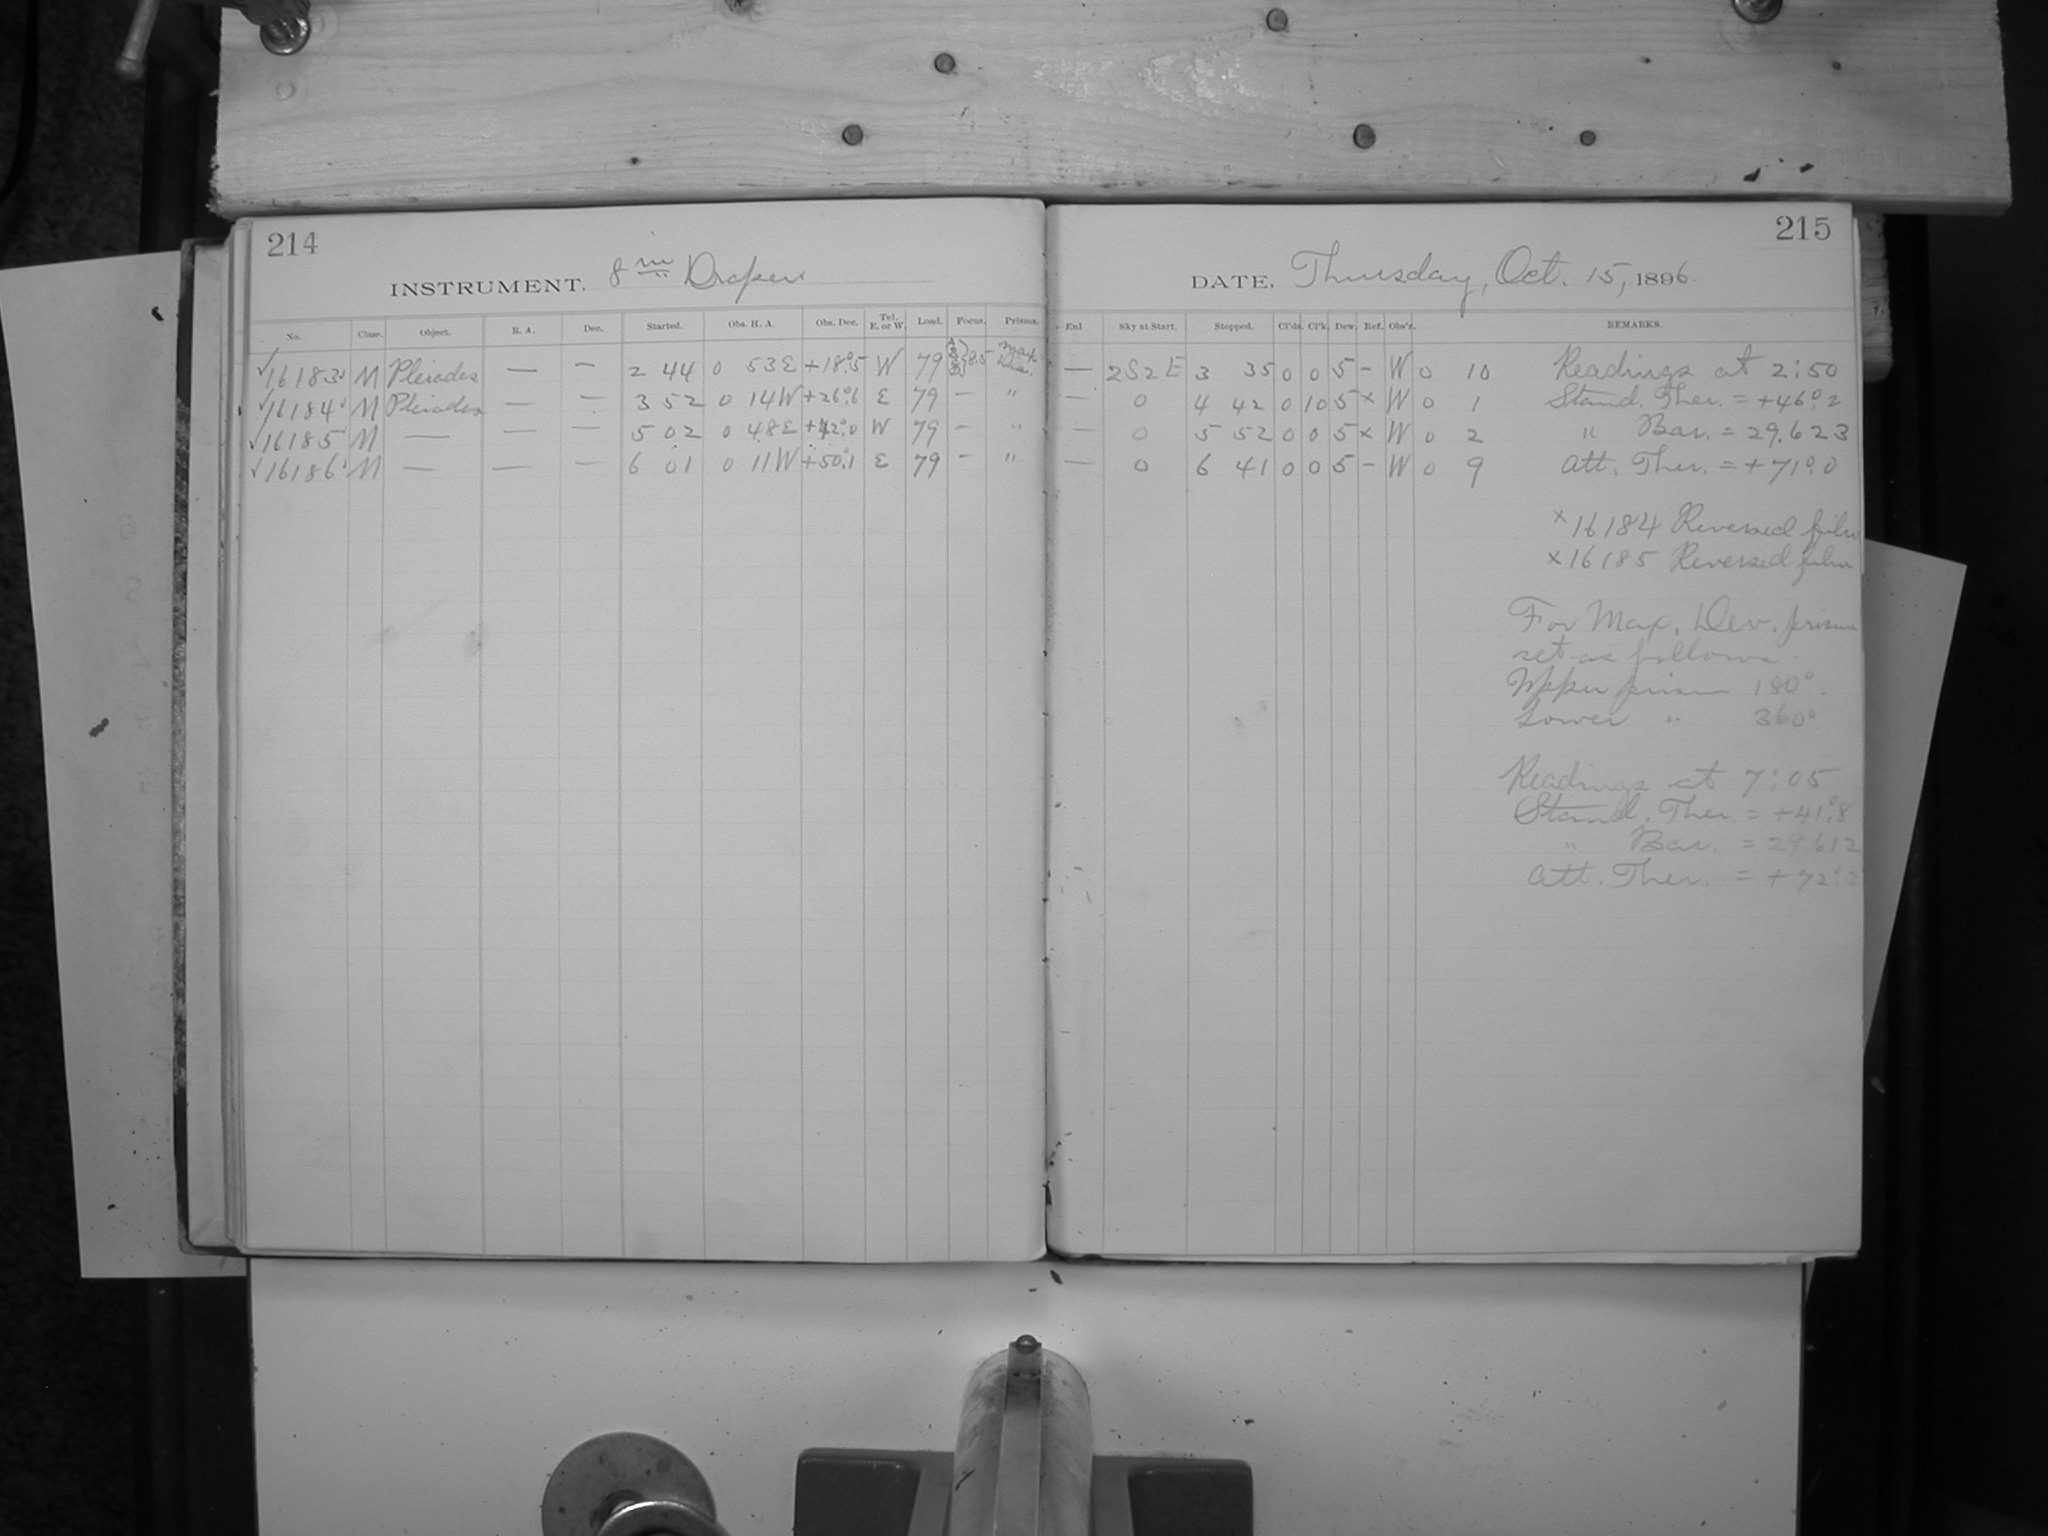 214
INSTRUMENT. 8 in Draper
No. Class. Object. R. A. Dec. Started. Obs. H. A. Obs. Dec. Tel. E. or W. Load. Focus. Prisms.
✓16183 M Pleiades — — 2 44 0 53E +18°.5 W 79 8.5 Max. Dev.
✓16184 M Pleiades — — 3 52 0 14W +26°.6 E 79 — "
✓16185 M — — 5 02 0 48E +42°.0 W 79 — "
✓16186 M — — — 6 01 0 11W +50°.1 E 79 — "
215
DATE, Thursday, Oct. 15, 1896.
End Sky at Start. Stopped. Cl'ds. Cl'k. Dew. Ref. Obs'r. REMARKS.
— 2S2E 3 35 0 0 5 – W 0 10 Readings at 2:50
— 0 4 42 0 10 5 x W 0 1 Stand. Ther. = +46°.2
— 0 5 52 0 0 5 x W 0 2 " Bar. = 29.623
— 0 6 41 0 0 5 – W 0 9 Att. Ther. = +71°.0
x 16184 Reversed film
x 16185 Reversed film
For Max. Dev. prism
set as follows
Upper prism 180°.
Lower " 360°
Readings at 7:05
Stand. Ther. = +41°.8
" Bar. = 29.612
Att. Ther. = +72°.3